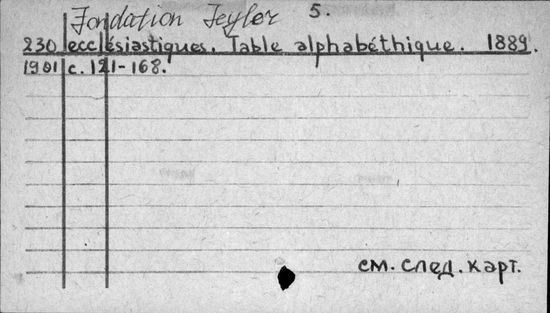 Fondation Teyler 5.
230 ecclésiastiques. Table alphabéthique. 1889.
1901 c. 121-168.
см. след. карт.